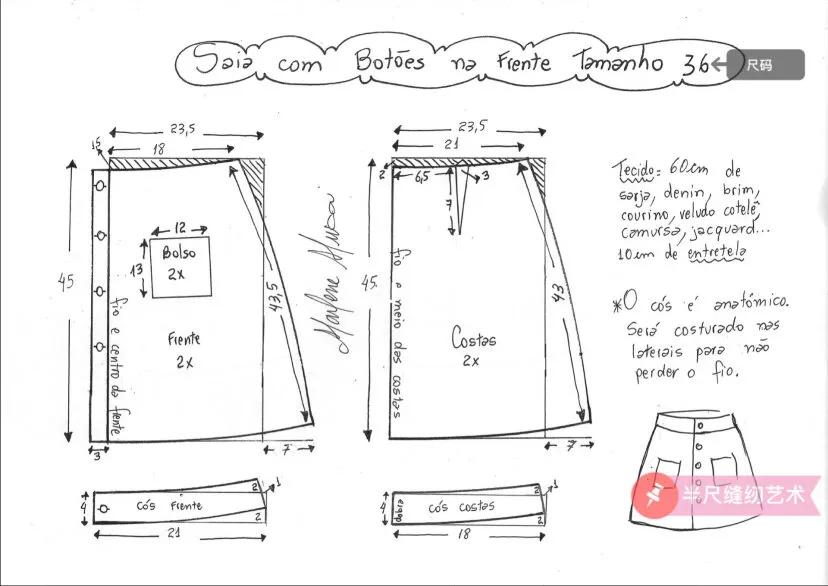 Saia com Botões na Frente Tamanho 36
尺码
23,5
18
1,5
45
12
13
Bolso
2x
43,5
fio e centro da frente
Frente
2x
3
7
Marlene Mukai
23,5
21
2
6,5
3
7
45
fio e meio das costas
43
Costas
2x
7
Tecido: 60cm de
sarja, denin, brim,
courino, veludo cotelê,
camursa, jacquard...
10cm de entretela
*O cós é anatómico.
Será costurado nas
laterais para não
perder o fio.
4
cós frente
2
1
2
21
4
dobra
cós costas
2
1
2
18
半尺缝纫艺术